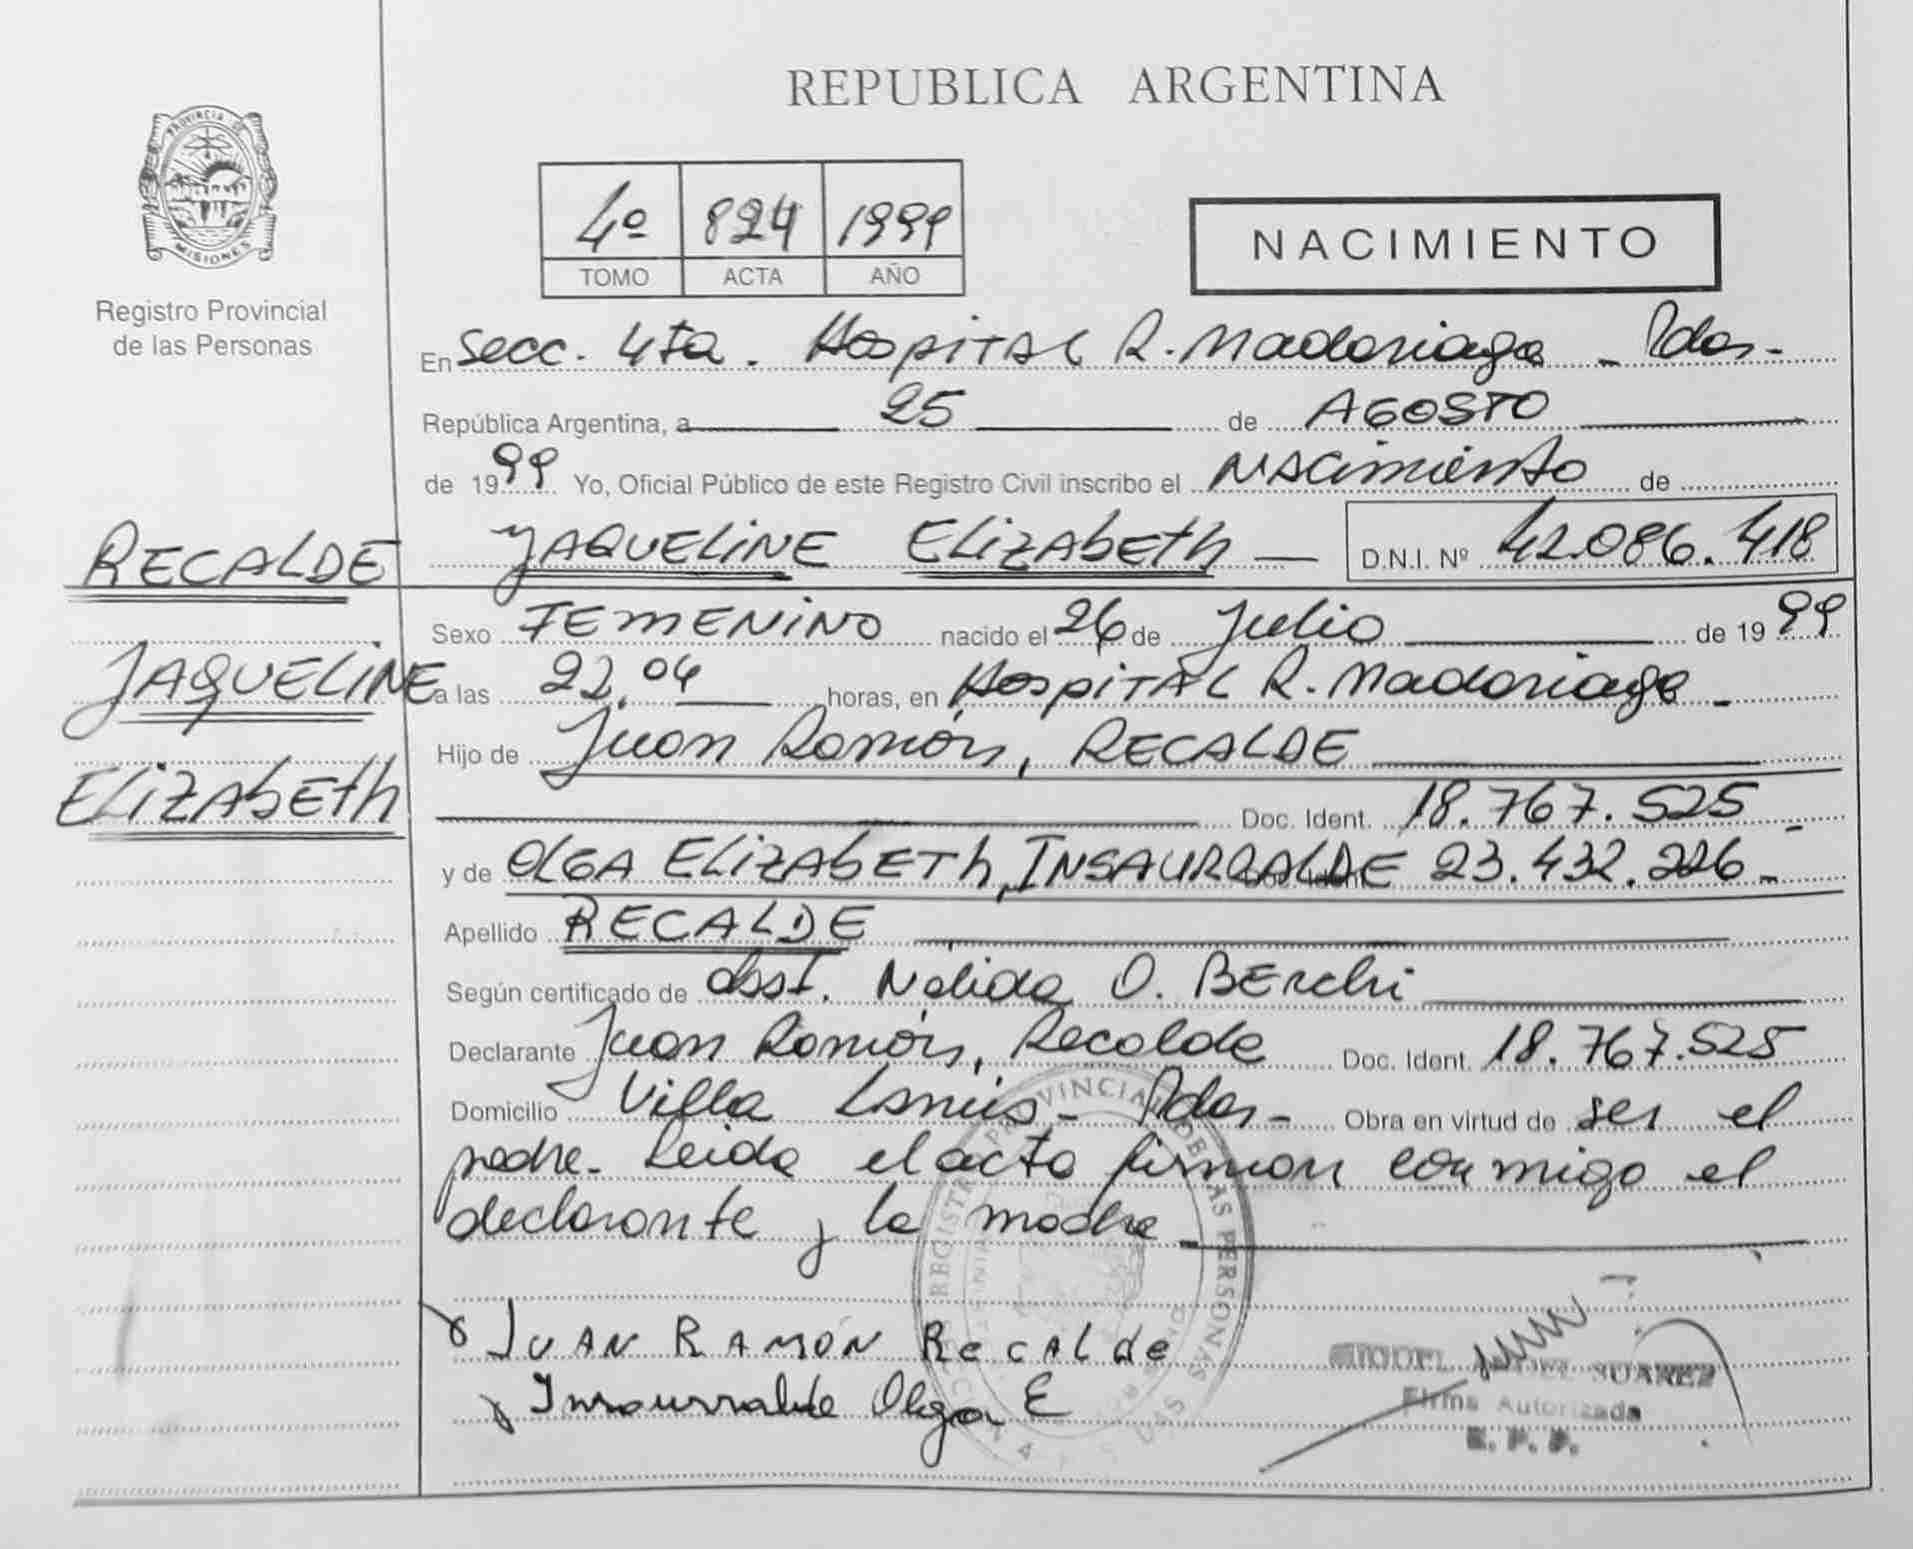 REPUBLICA ARGENTINA
PROVINCIA DE
MISIONES
Registro Provincial
de las Personas
4º 824 1999
TOMO ACTA AÑO
NACIMIENTO
En Secc. 4ta. Hospital R. Madariaga - Pdas-
República Argentina, a 25 de AGOSTO
de 1999 Yo, Oficial Público de este Registro Civil inscribo el Nacimiento de
YAQUELINE ELIZABETH D.N.I. Nº 42.086.418
RECALDE
JAQUELINE
ELIZABETH
Sexo FEMENINO nacido el 26 de Julio de 1999
a las 22,04 horas, en Hospital R. Madariaga -
Hijo de Juan Ramón, RECALDE
Doc. Ident. 18.767.525 -
y de OLGA ELIZABETH, INSAURRALDE 23.432.226 -
Apellido RECALDE
Según certificado de obst. Nélida O. Berchi
Declarante Juan Ramón, Recalde Doc. Ident. 18.767.525
Domicilio Villa Lanús - Pdas - Obra en virtud de ser el
padre. Leida el acta firman conmigo el
declarante y la madre
REGISTRO PROVINCIAL DE LAS PERSONAS
JUAN RAMÓN RecALde
Insaurralde Olga E
SUAREZ
Firma Autorizada
R. P. P.